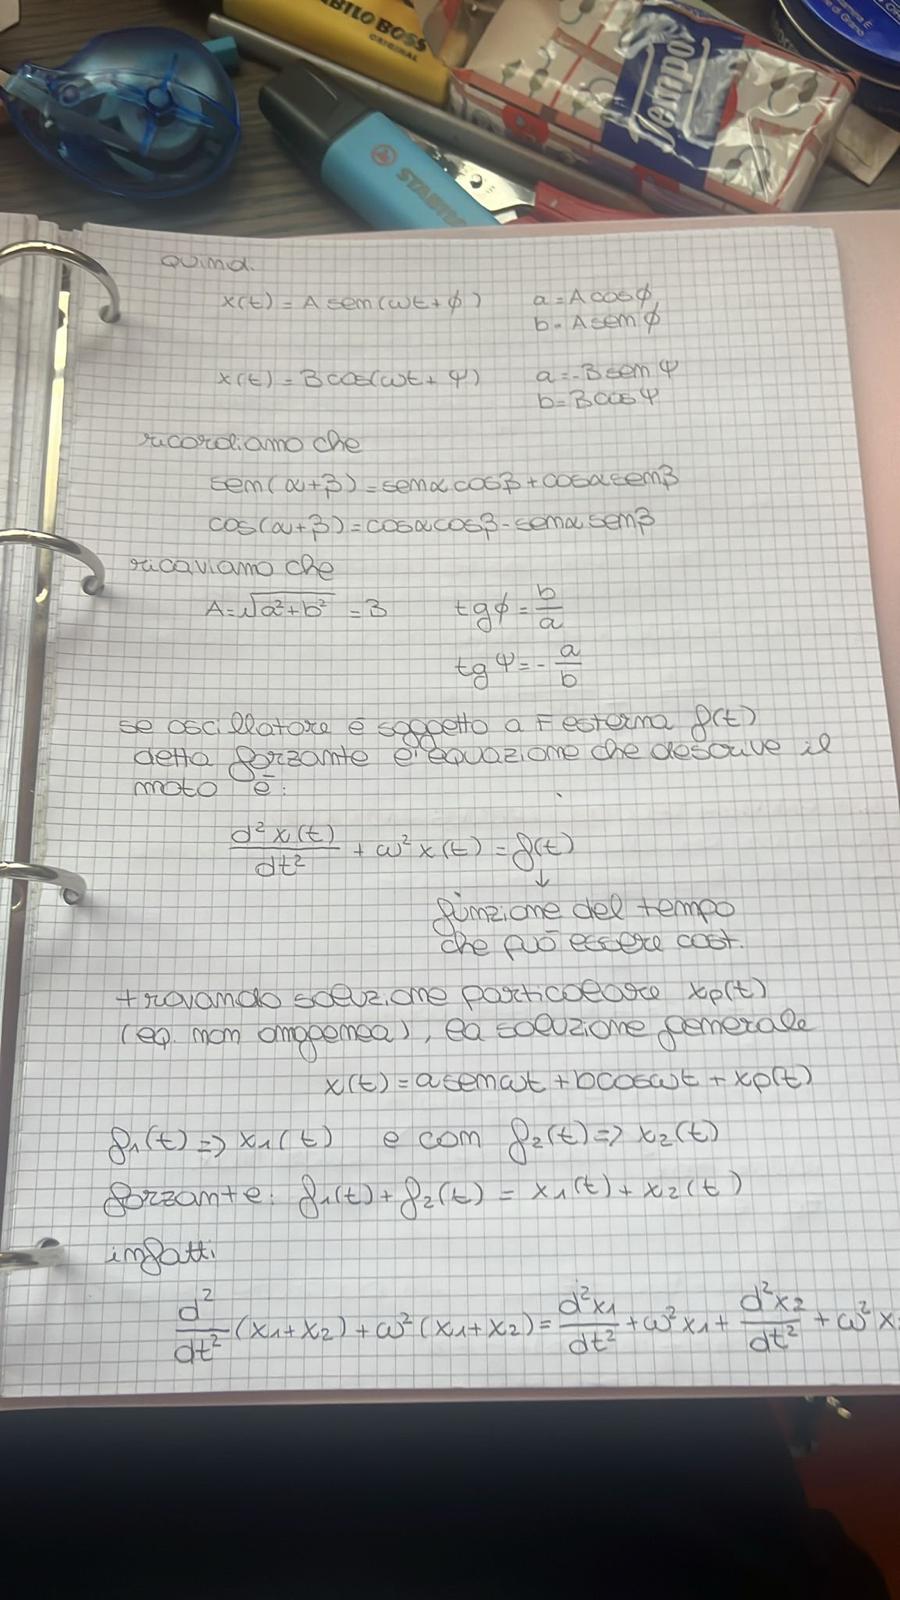 BILO BOSS
ORIGINAL
Tempo
STABILO
quindi
x(t) = A sen(ωt + φ) a = A cos φ
b = A sen φ
x(t) = B cos(ωt + ψ) a = -B sen ψ
b = B cos ψ
ricordiamo che
sen(α+β) = sen α cos β + cos α sen β
cos(α+β) = cos α cos β - sen α sen β
ricaviamo che
A = √(a² + b²) = B tg φ = b/a
tg ψ = - a/b
se oscillatore è soggetto a F esterna f(t)
detta forzante l'equazione che descrive il
moto è:
d²x(t)/dt² + ω² x(t) = f(t)
↓
funzione del tempo
che può essere cost.
trovando soluzione particolare xp(t)
(eq. non omogenea), la soluzione generale
x(t) = a sen ωt + b cos ωt + xp(t)
f₁(t) => x₁(t) e con f₂(t) => x₂(t)
forzante: f₁(t) + f₂(t) = x₁(t) + x₂(t)
infatti
d²/dt² (x₁+x₂) + ω² (x₁+x₂) = d²x₁/dt² + ω² x₁ + d²x₂/dt² + ω² x